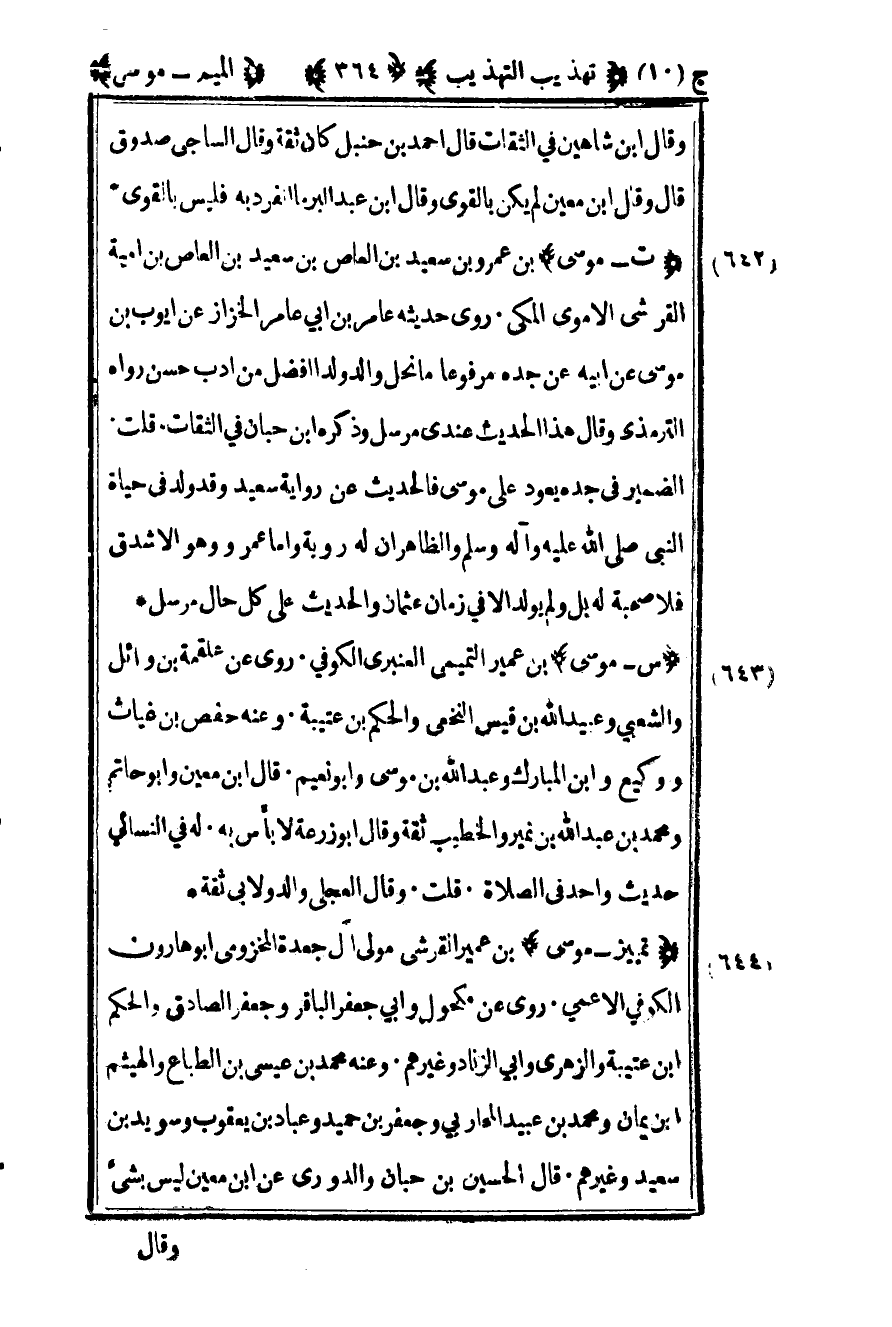 ج (١٠) ﴿ تهذيب التهذيب ﴾ ﴿ ٣٦٤ ﴾ ﴿ الميم ــ موسى ﴾
وقال ابن شاهين في الثقات قال احمد بن حنبل كان ثقة وقال الساجى صدوق
قال وقال ابن معين لم يكن بالقوى وقال ابن عبد البر ما انفرد به فليس بالقوى *
(٦٤٢) ﴿ ت ــ موسى ﴾ بن عمرو بن سعيد بن العاص بن سعيد بن العاص بن امية
القرشى الاموى المكى . روى حديثه عامر بن ابي عامر الخزاز عن ايوب بن
موسى عن ابيه عن جده مرفوعا ما نحل والد ولدا افضل من ادب حسن رواه
الترمذى وقال هذا الحديث عندى مرسل وذكره ابن حبان في الثقات . قلت .
الضمير فى جده يعود على موسى فالحديث عن رواية سعيد وقد ولد فى حياة
النبى صلى الله عليه وآله وسلم والظاهر ان له روية واما عمرو وهو الاشدق
فلا صحبة له بل ولم يولد الا في زمان عثمان والحديث على كل حال مرسل *
(٦٤٣) ﴿ س ــ موسى ﴾ بن عمير التميمى العنبرى الكوفي . روى عن علقمة بن وائل
والشعبي وعبيد الله بن قيس النخعى والحكم بن عتيبة . وعنه حفص بن غياث
ووكيع وابن المبارك وعبد الله بن موسى وابو نعيم . قال ابن معين وابو حاتم
ومحمد بن عبد الله بن نمير والخطيب ثقة وقال ابو زرعة لا بأس به . له في النسائي
حديث واحد فى الصلاة . قلت . وقال العجلى والدولابى ثقة *
(٦٤٤) ﴿ تمييز ــ موسى ﴾ بن عمير القرشى مولى آل جعدة المخزومى ابو هارون
الكوفي الاعمي . روى عن مكحول وابي جعفر الباقر وجعفر الصادق والحكم
ابن عتيبة والزهرى وابي الزناد وغيرهم . وعنه محمد بن عيسى بن الطباع والهيثم
ابن يمان ومحمد بن عبيد المحاربي وجعفر بن حميد وعباد بن يعقوب وسويد بن
سعيد وغيرهم . قال الحسين بن حبان والدورى عن ابن معين ليس بشئ
وقال